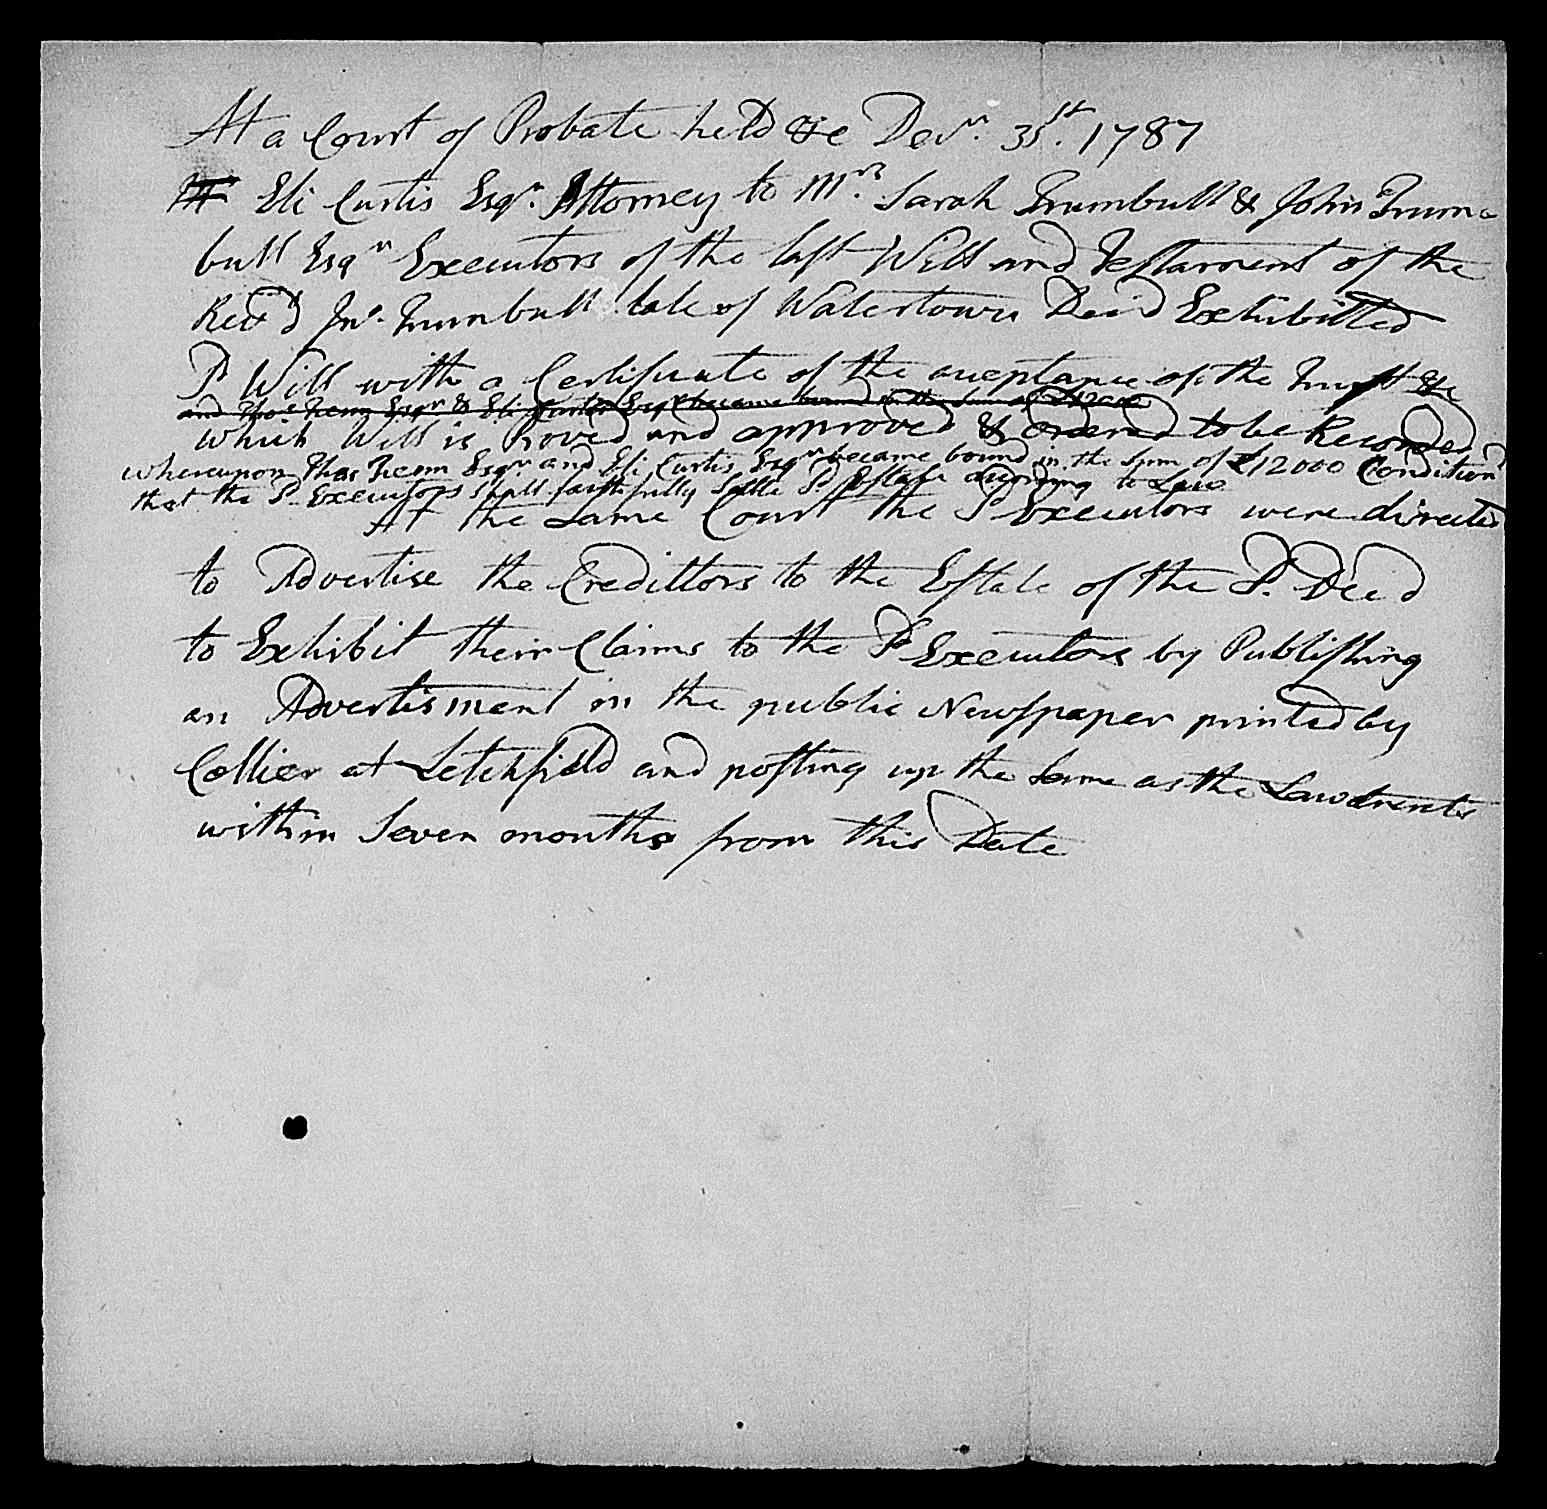 At a Court of Probate held &c Decr. 31st. 1787
Eli Curtis Esqr. Attorney to Mrs. Sarah Trumbull & John Trum=
bull Esqr Executors of the last Will and Testament of the
Revd Jno. Trumbull late of Watertown Decd Exhibitted
Sd Will with a Certificate of the acceptance of the Trust &c
and Thos Fenn Esqr & Eli Curtis Esqr became bound in the Sum of £12000
which Will is Proved and approved & ordered to be Recorded
whereupon Thos Fenn Esqr and Eli Curtis Esqr became bound in the Sum of £12000 Conditiond
that the Sd Executors Shall faithfully Settle Sd Estate according to Law
At the Same Court the Sd Executors were directed
to Advertise the Credittors to the Estate of the Sd. Decd
to Exhibit their Claims to the Sd Executors by Publishing
an Advertisment in the public Newspaper printed by
Collier at Letchfield and posting up the Same as the Law directs
within Seven months from this Date